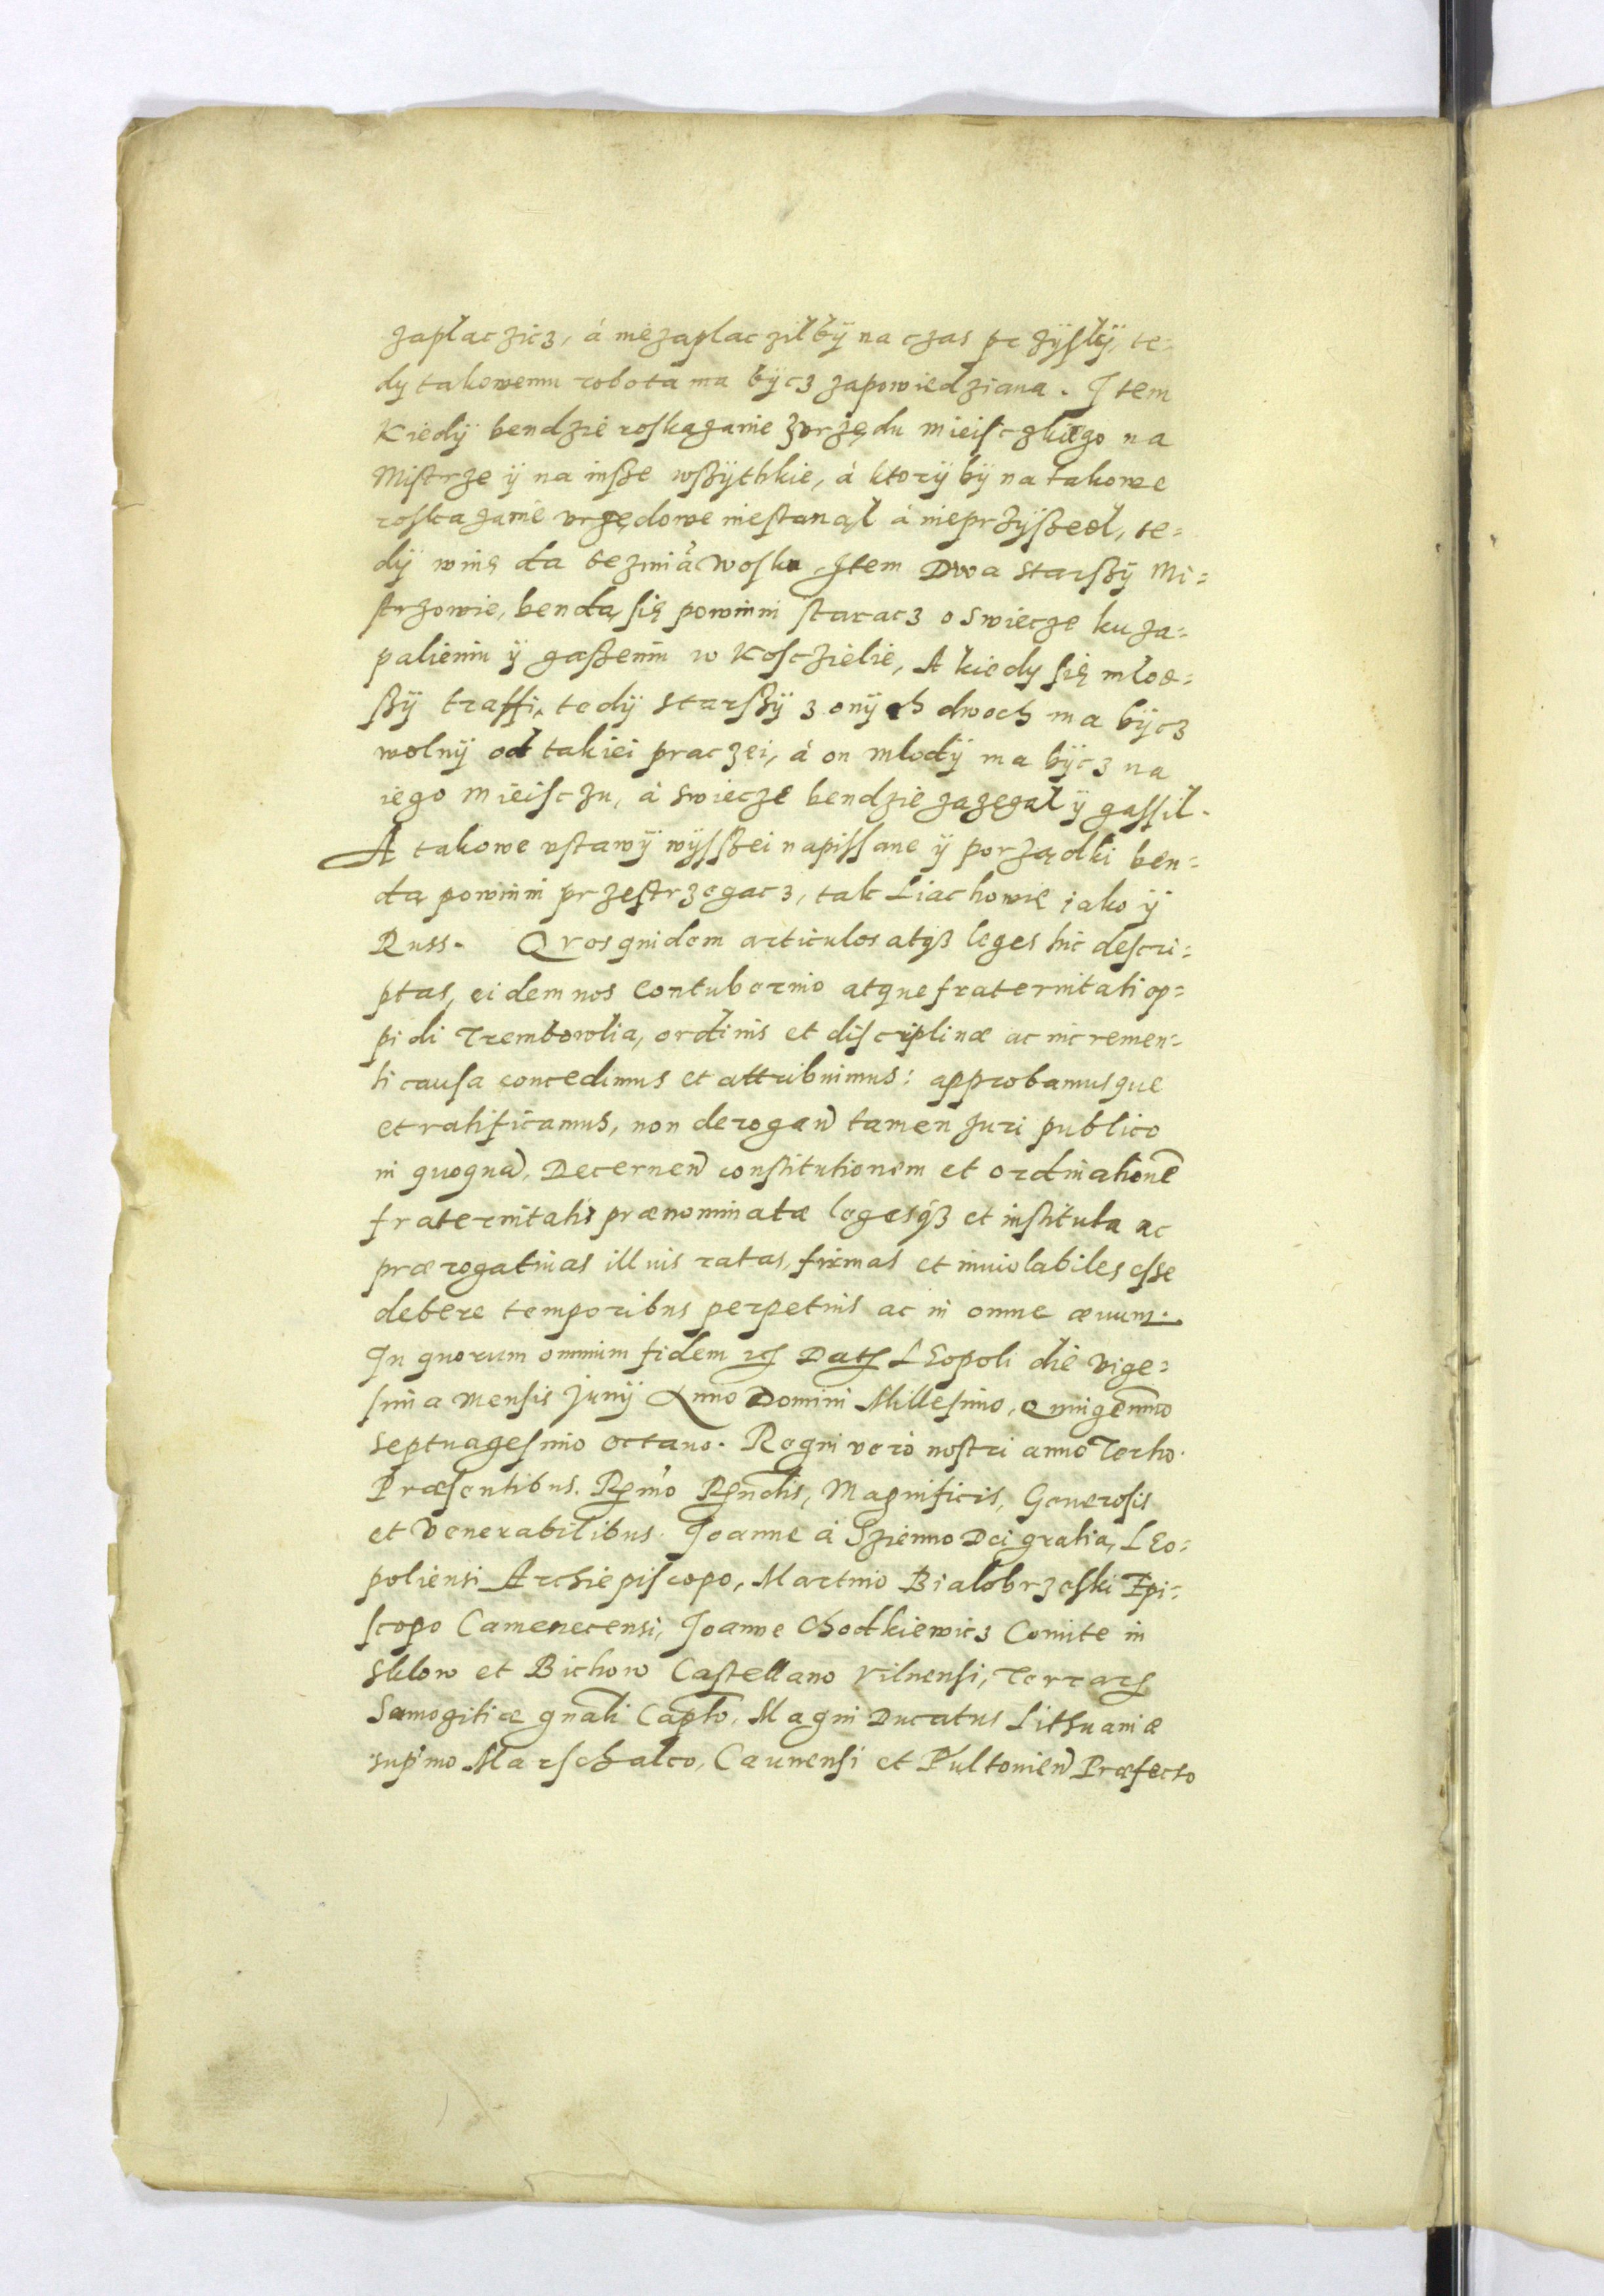 zaplaczicz, á niezaplaczilbÿ na czas przÿslÿ, te=
dy takowemu robota ma bÿcz zapowiedziana. Item
Kiedÿ bendzie roskazanie zvrzędu mieisczkiego na
Mistrze ÿ na insze wszÿthkie, á ktorÿ bÿ na takowe
roskazanie vrzędowe niestanął á nieprzÿszedł, te=
dÿ winę da bezmiá wosku, Item Dwa starszÿ Mi=
strzowie, bendą się powinni staracz o swiecze ku za=
palieniu ÿ gaszeniu w Kosczielie, A kiedy się mlod=
szÿ traffi, tedÿ starszÿ z onÿch dwoch ma bÿcz
wolnÿ od takiei praczei, á on mlodÿ ma bÿcz na
iego mieisczu, á swiecze bendzie zazegał ÿ gassil.
A takowe vstawÿ wÿsszei napissane ÿ porządki ben=
dą powinni przestrzegacz, tak Liachowie iako ÿ
Russ. Qvos quidem articulos atqz leges hic descri=
ptas, eidem nos contubernio atque fraternitati op=
pidi Trembowlia, ordinis et disciplinæ ac incremen=
ti causa concedimus et attribuimus: approbamusque
et ratificamus, non derogan tamen Juri publico
in quoqua. Decernen constitutionem et ordinatione
fraternitatis prænominatæ legesqz et instituta ac
prærogatiuas illius ratas, firmas et inuiolabiles esse
debere temporibus perpetuis ac in omne æuum.
In quorum omnium fidem rc Dat LEopoli die vige=
sima mensis Junij Anno Domini Millesimo, Quingenmo
septuagesimo octauo. Regni vero nostri anno Tertio.
Præsentibus. Rmo Rndis, Magnificis, Generosis
et Venerabilibus. Joanne á Szienno Dei gratia, LEo=
poliensi Archiepiscopo, Martino Bialobrzeski Epi=
scopo Camenecensi, Joanne Chodkiewicz Comite in
Sklow et Bichow Castellano Vilnensi, Terrar
Samogitiæ gnali Capto, Magni Ducatus Lithuaniæ
supmo Marschalco, Caunensi et Pultonien Præfecto